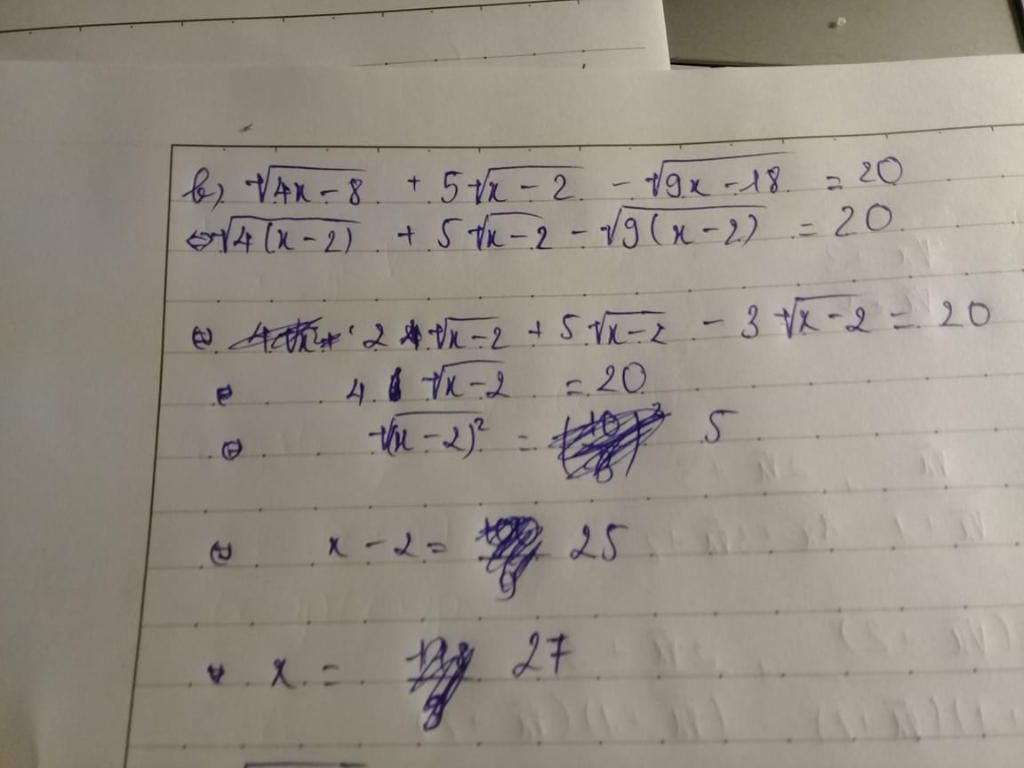 b) √(4x-8) + 5√(x-2) - √(9x-18) = 20
⇔ √(4(x-2)) + 5√(x-2) - √(9(x-2)) = 20
⇔ 2√(x-2) + 5√(x-2) - 3√(x-2) = 20
⇔ 4√(x-2) = 20
⇔ √(x-2)² = 5
⇔ x-2 = 25
⇔ x = 27